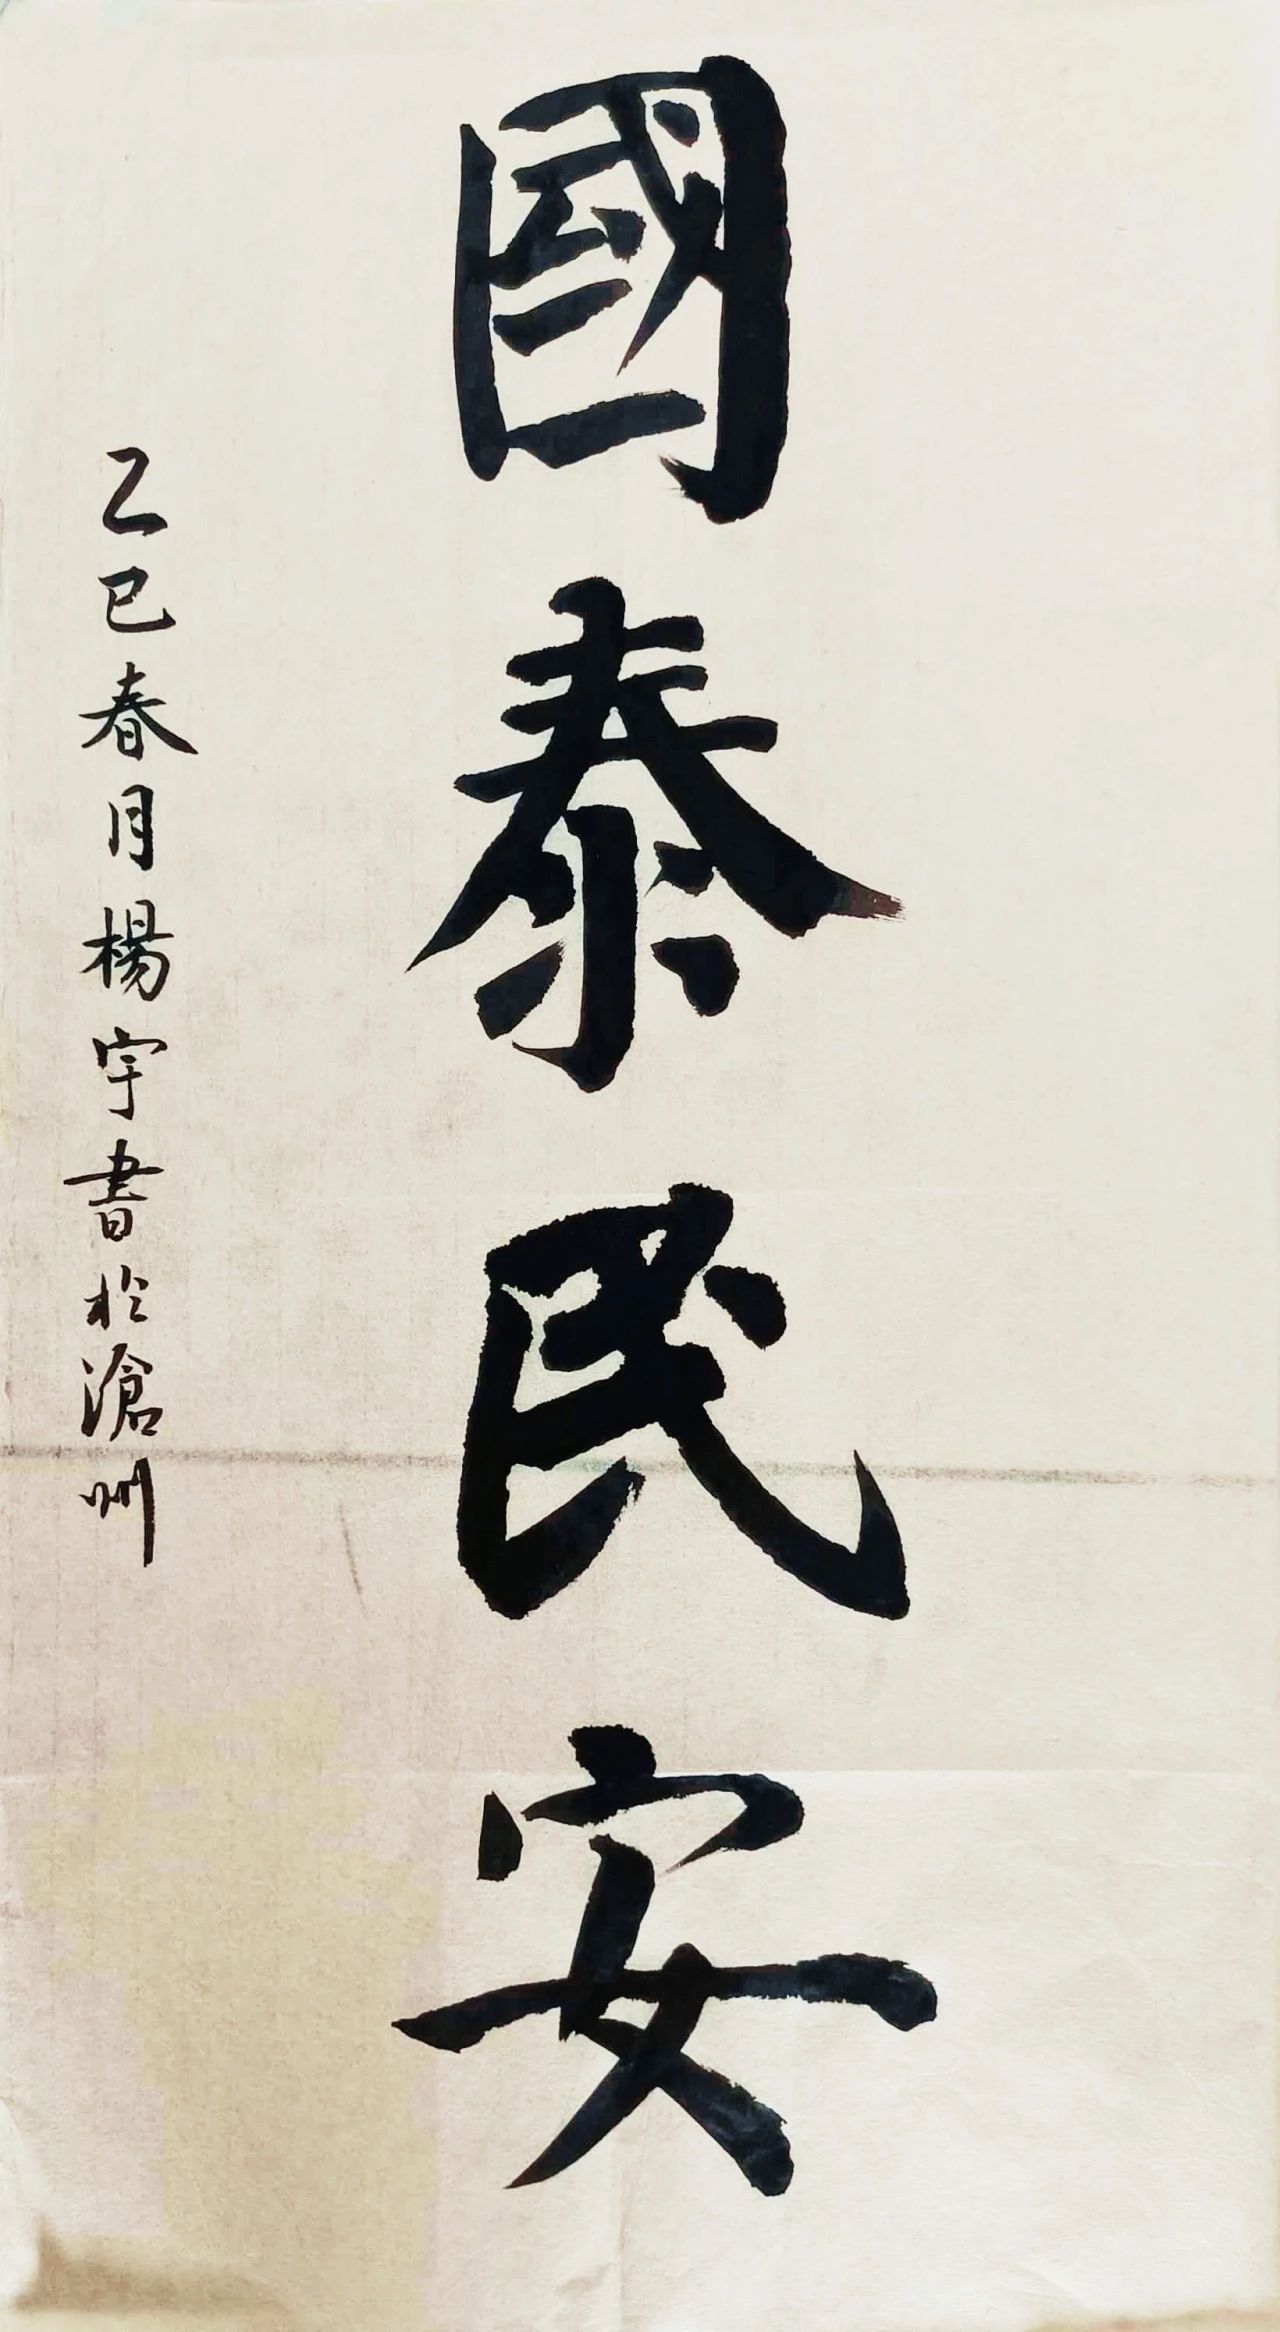 國泰民安
乙巳春月楊宇書於滄州